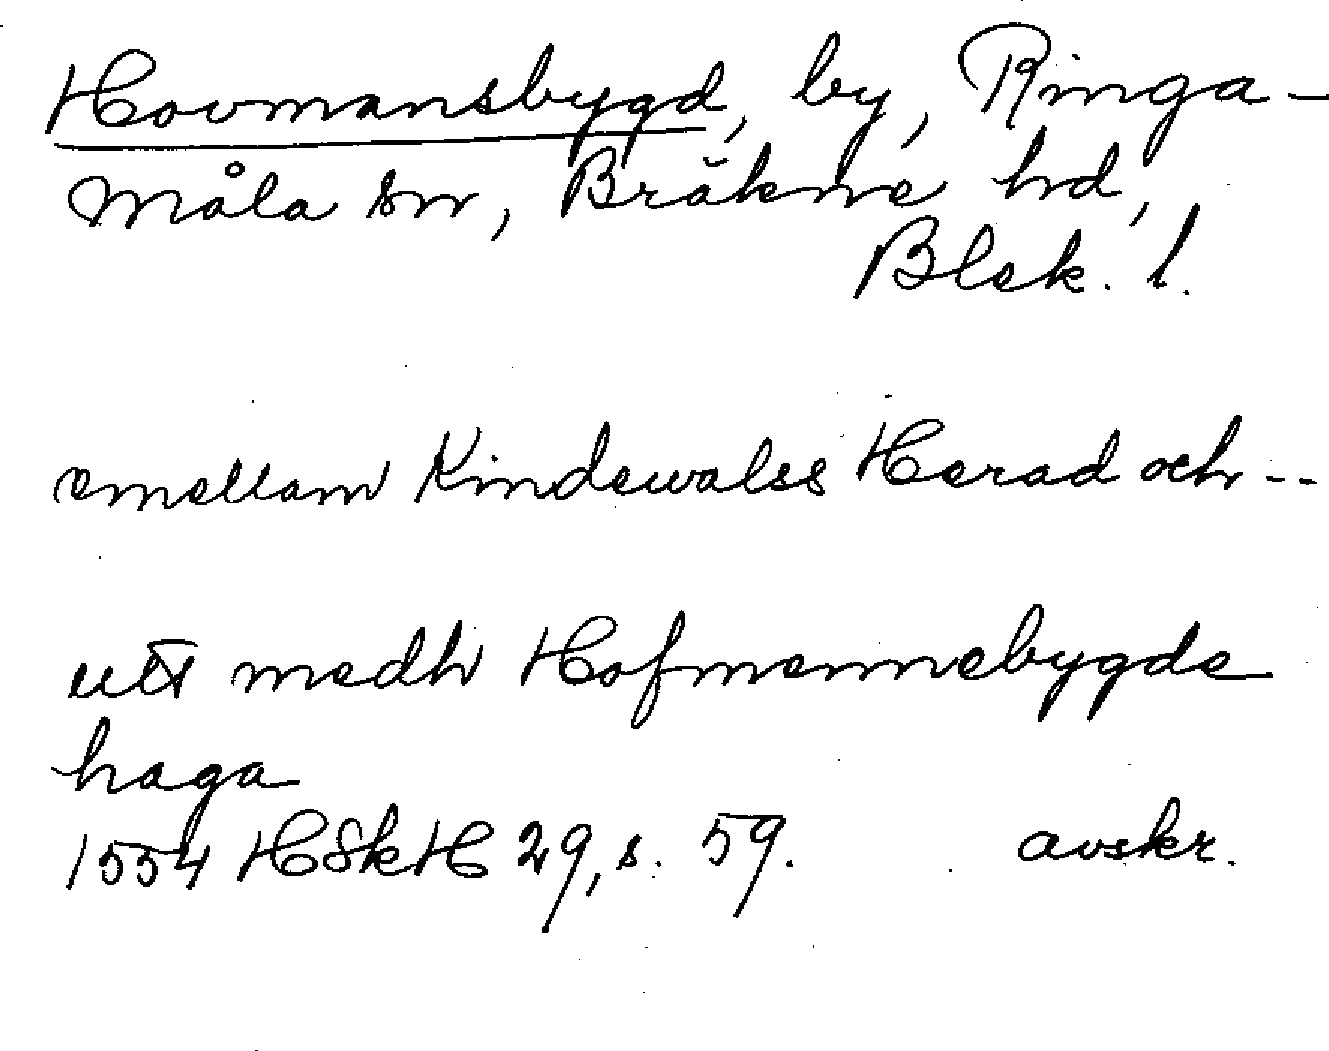 Hovmansbygd, by, Ringa-
måla sn, Bräkne hd,
Blek. l.
emellam Kindewalss Herad och--
utt medh Hofmennebygde
haga
1554 HSkH 29, s. 59. avskr.